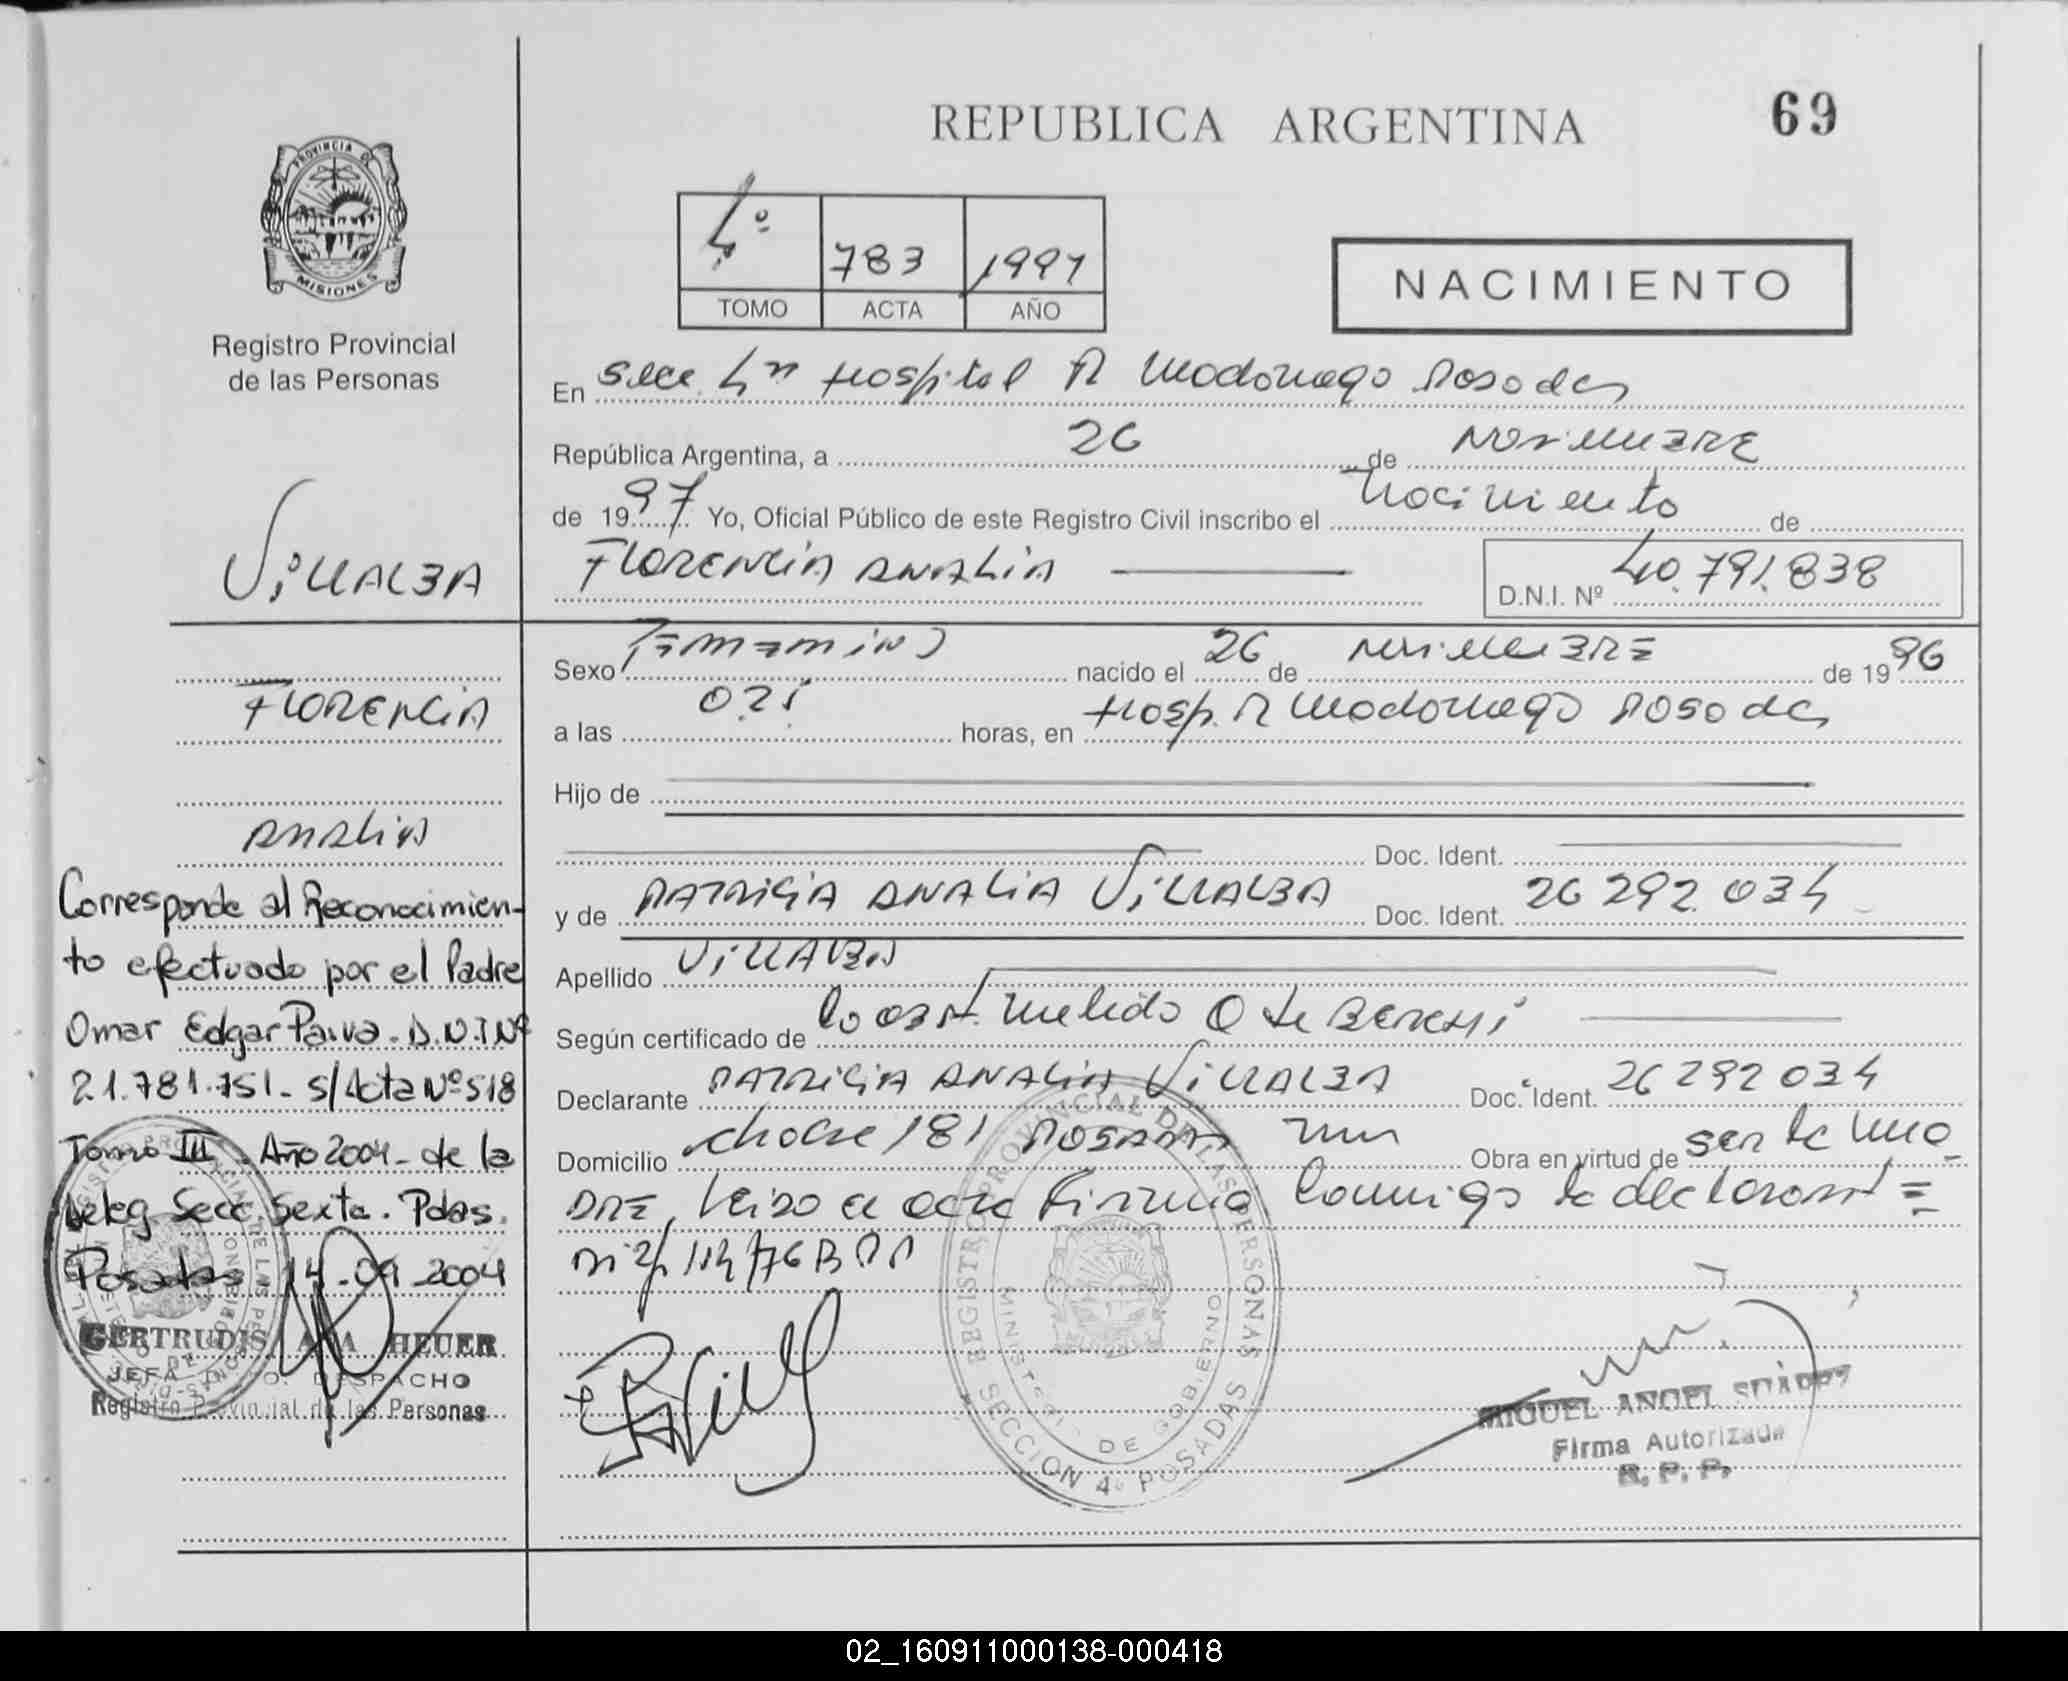 REPUBLICA ARGENTINA
69
PROVINCIA DE
MISIONES
Registro Provincial
de las Personas
4º 783 1997
TOMO ACTA AÑO
NACIMIENTO
En Secc. 4ta Hospital R Madariaga Posadas
República Argentina, a 26 de NOVIEMBRE
de 1997 Yo, Oficial Público de este Registro Civil inscribo el Nacimiento de
FLORENCIA ANALIA
D.N.I. Nº 40.791.838
Sexo FEMENINO nacido el 26 de NOVIEMBRE de 1996
a las horas, en Hosp. R Madariaga Posadas
Hijo de
Doc. Ident.
y de PATRICIA ANALIA VILLALBA Doc. Ident. 26 292 034
Apellido VILLALBA
Según certificado de
Declarante PATRICIA ANALIA VILLALBA Doc. Ident. 26 292 034
Domicilio 181 POSADAS Obra en virtud de ser la
DRE, el acta Firma Conmigo la declarante =
VILLALBA
FLORENCIA
ANALIA
Corresponde al Reconocimien-
to efectuado por el Padre
Omar Edgar Paiva. D.N.I Nº
21.781.751. s/Acta Nº 518
Tomo III. Año 2004. de la
Deleg Secc. Sexta. Pdas.
Posadas 14-09-2004
GERTRUDIS ANA HEUER
JEFA DPTO. DESPACHO
Registro Provincial de las Personas
REGISTRO PROVINCIAL DE LAS PERSONAS
MINISTERIO DE GOBIERNO
SECCION 4º POSADAS
MIGUEL ANGEL SUAREZ
Firma Autorizada
R. P. P.
02_160911000138-000418